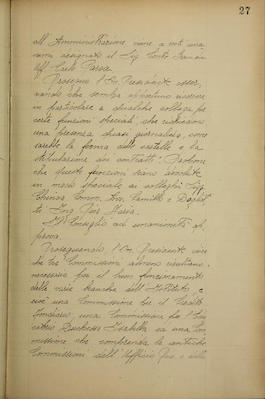 27
all'Amministrazione viene a voti una-
nimi assegnato il Sig. Conte
Uff. Carlo Parea.
Prosegue l'On. Presidente osser-
vando che sembra opportuno incaricare
in particolare a qualche collega per
certe funzioni speciali, che richiedono
una presenza quasi giornaliera, come
sarebbe la firma delle cartelle e la
stipulazione dei contratti. Propone
che queste funzioni siano avocate
in modo speciale ai colleghi Sigg.
Comm. Avv. Camillo e
Ing. Pio
Il Consiglio ad unanimità ap-
prova.
Proseguendo l'On. Presidente dice
che tre Commissioni almeno risultano
necessarie per il buon funzionamento
delle varie branche dell'Istituto e
cioè una Commissione per il Credito
Fondiario, una Commissione per l'
Duchessa Isabella ed una Com-
missione che comprenda le antiche
Commissioni dell'Ufficio Pio e della